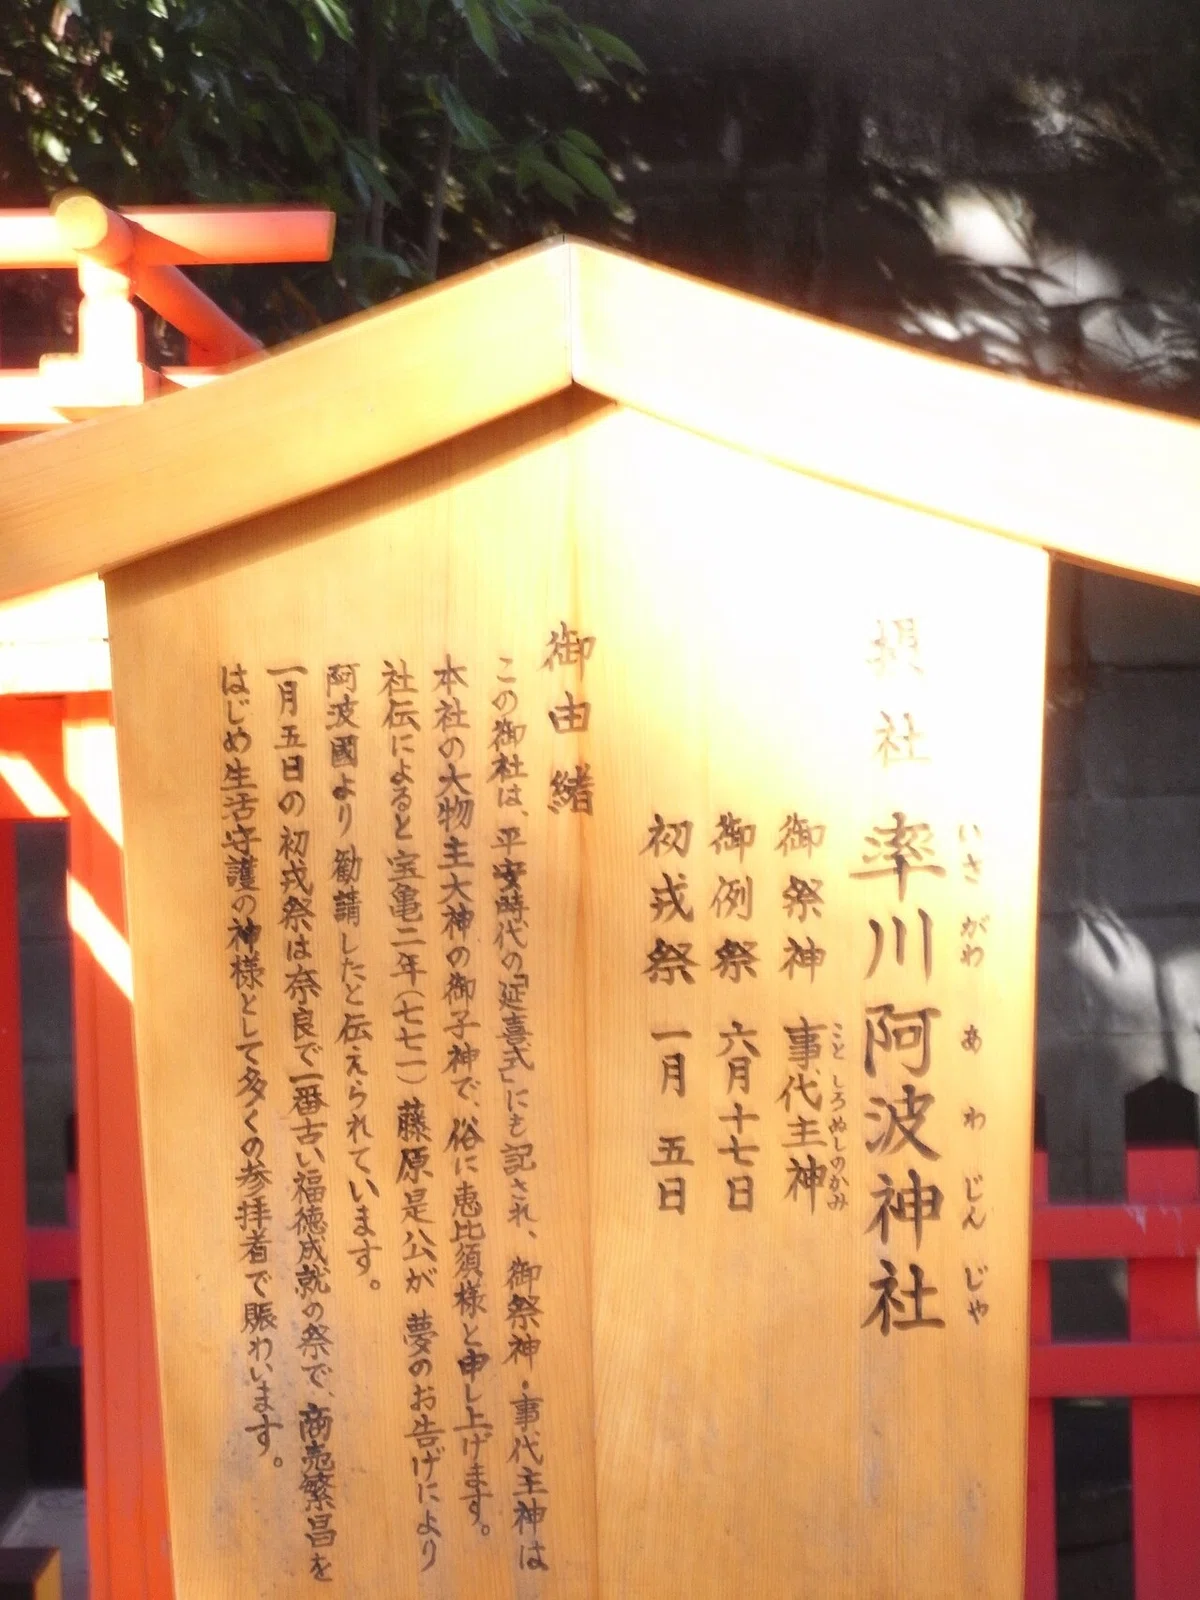 摂社 率川阿波神社
いさ がわ あ わ じん じゃ
御祭神 事代主神
こと しろぬしのかみ
御例祭 六月十七日
初戎祭 一月 五日
御由緒
この御社は、平安時代の「延喜式」にも記され、御祭神・事代主神は
本社の大物主大神の御子神で、俗に恵比須様と申し上げます。
社伝によると宝亀二年(七七一)藤原是公が 夢のお告げにより
阿波國より 勧請したと伝えられています。
一月五日の初戎祭は奈良で一番古い福徳成就の祭で、商売繁昌を
はじめ生活守護の神様として多くの参拝者で賑わいます。